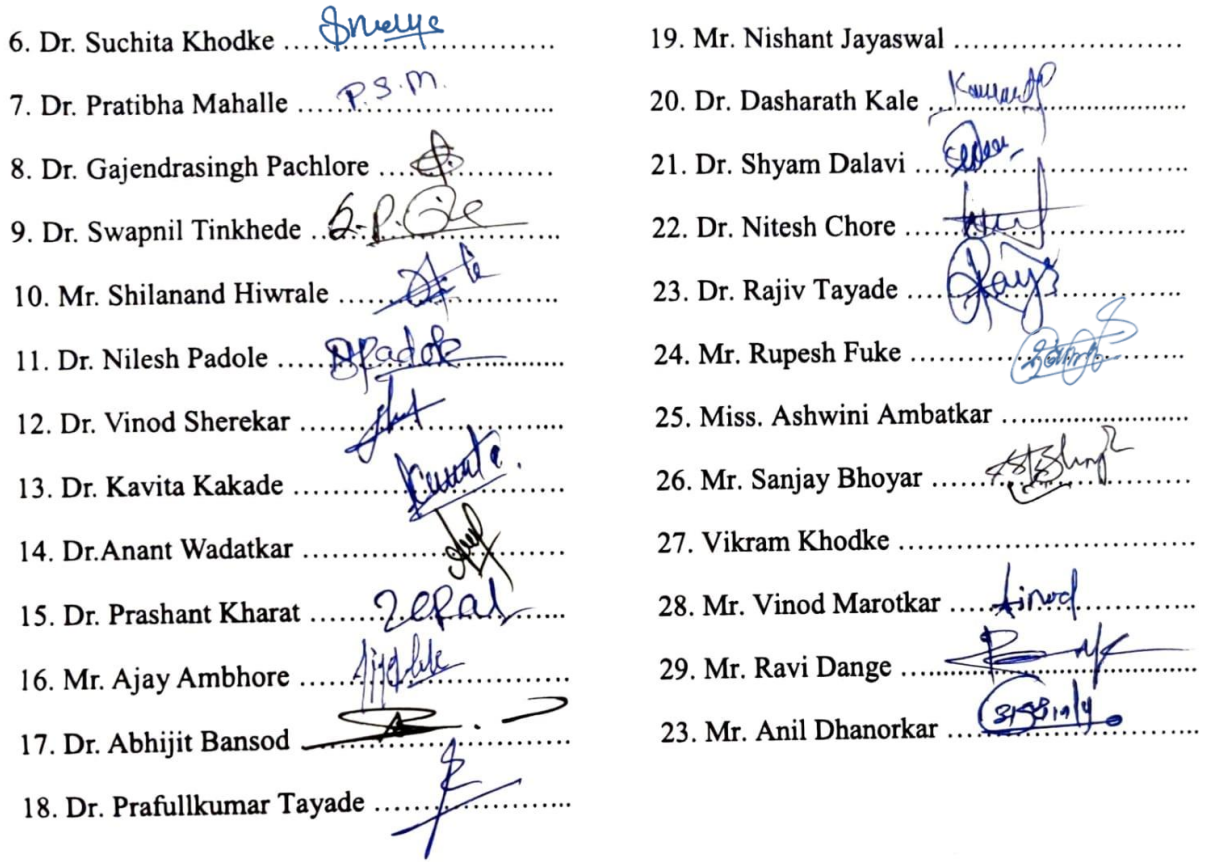 6. Dr. Suchita Khodke ..............................
7. Dr. Pratibha Mahalle ............................ P.S.M.
8. Dr. Gajendrasingh Pachlore ....................
9. Dr. Swapnil Tinkhede ............................
10. Mr. Shilanand Hiwrale .........................
11. Dr. Nilesh Padole ................................ Padole
12. Dr. Vinod Sherekar ..............................
13. Dr. Kavita Kakade ...............................
14. Dr.Anant Wadatkar ..............................
15. Dr. Prashant Kharat .............................
16. Mr. Ajay Ambhore ...............................
17. Dr. Abhijit Bansod ...............................
18. Dr. Prafullkumar Tayade ......................
19. Mr. Nishant Jayaswal ..........................
20. Dr. Dasharath Kale ..............................
21. Dr. Shyam Dalavi ................................
22. Dr. Nitesh Chore .................................
23. Dr. Rajiv Tayade .................................
24. Mr. Rupesh Fuke .................................
25. Miss. Ashwini Ambatkar .....................
26. Mr. Sanjay Bhoyar ...............................
27. Vikram Khodke ...................................
28. Mr. Vinod Marotkar .............................
29. Mr. Ravi Dange ...................................
23. Mr. Anil Dhanorkar ..............................